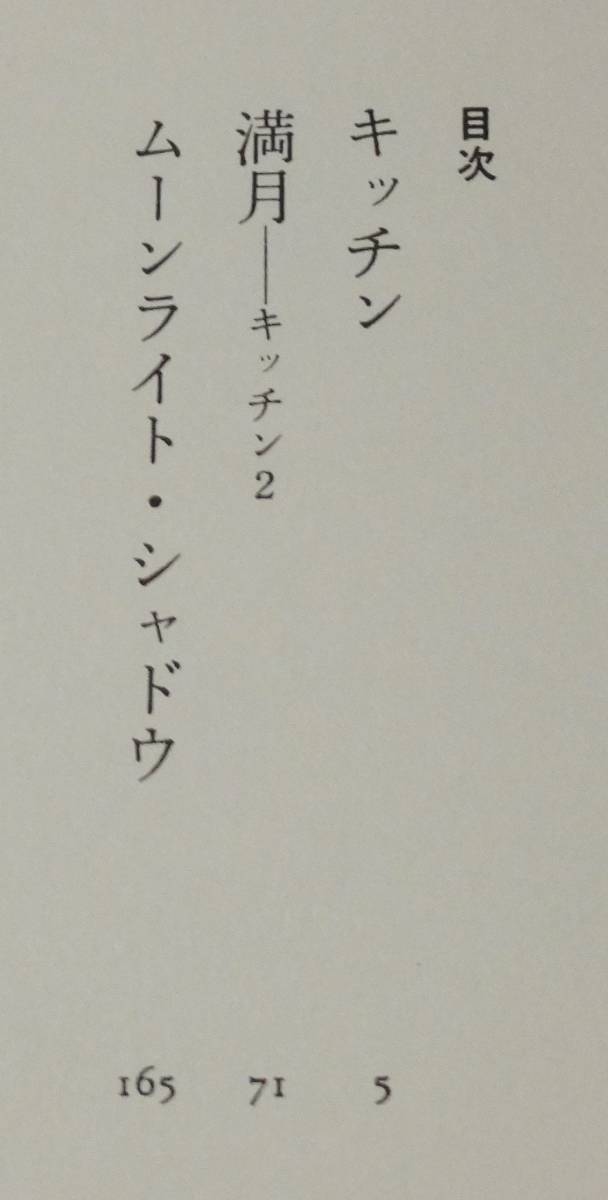 目次
キッチン 5
満月――キッチン2 71
ムーンライト・シャドウ 165